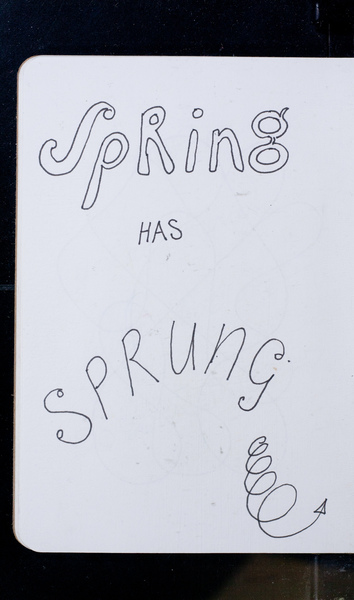 SpRing
HAS
SPRUnG